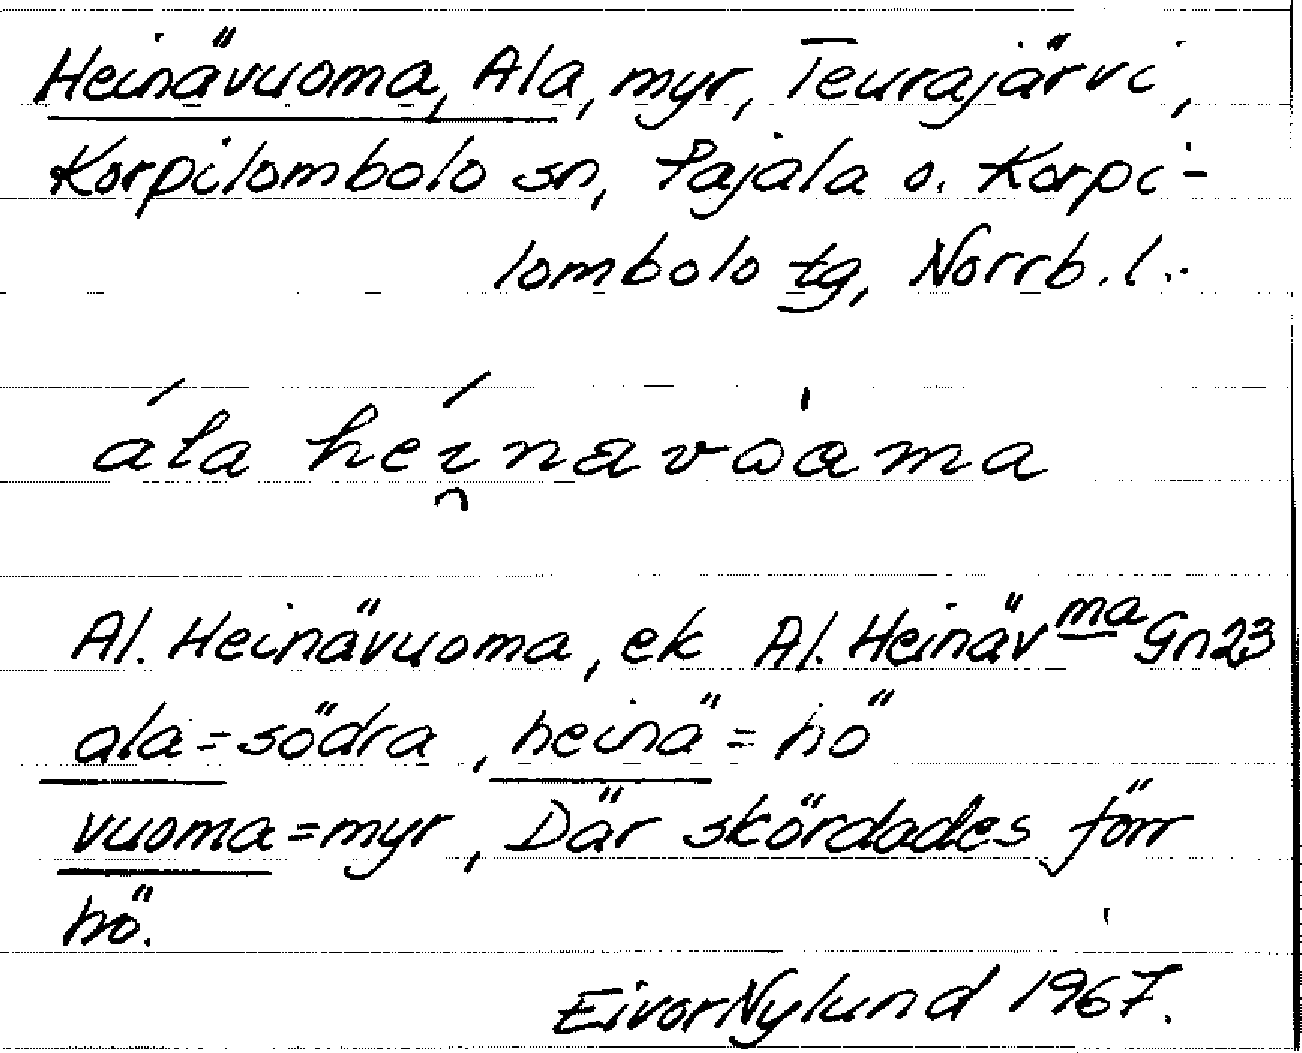 Heinävuoma, Ala, myr, Teurajärvi,
Korpilombolo sn, Pajala o. Korpi-
lombolo tg, Norrb. l.
Al. Heinävuoma, ek Al. Heinäv<sup>ma</sup> Gn23
ala = södra, heinä = hö
vuoma = myr, Där skördades förr
hö.
Eivor Nylund 1967.